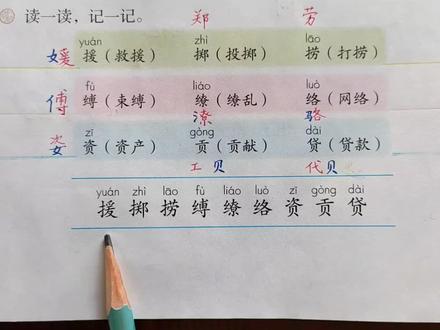 读一读，记一记。 郑 劳
yuán zhì lāo
媛 援（救援） 掷（投掷） 捞（打捞）
fù liáo luò
傅 缚（束缚） 缭（缭乱） 络（网络）
潦 骆
zī gòng dài
姿 资（资产） 贡（贡献） 贷（贷款）
工 贝 代贝
yuán zhì lāo fù liáo luò zī gòng dài
援 掷 捞 缚 缭 络 资 贡 贷